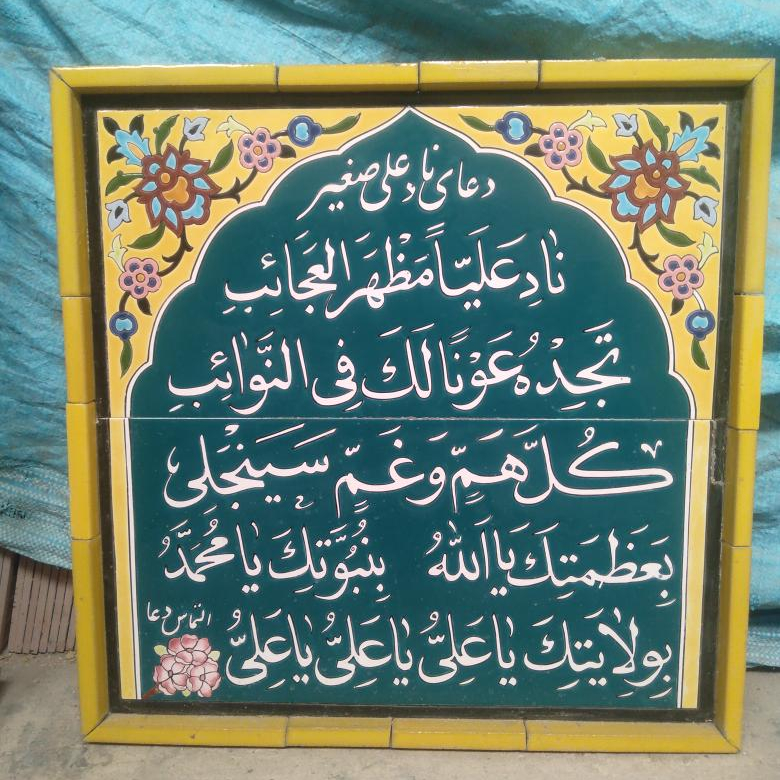 دعای ناد علی صغیر
نادِ عَلَیّاً مَظْهَرَ العَجَائِبِ
تَجِدْهُ عَوْنًا لَكَ فِی النَّوٰائِبِ
كُلُّ هَمٍّ وَ غَمٍّ سَیَنْجَلی
بِعَظَمَتِكَ یٰا اَللّٰهُ بِنُبُوَّتِكَ یٰا مُحَمَّدُ
بِوِلٰایَتِكَ یٰا عَلِیُّ یٰا عَلِیُّ یٰا عَلِیُّ
التماس دعا